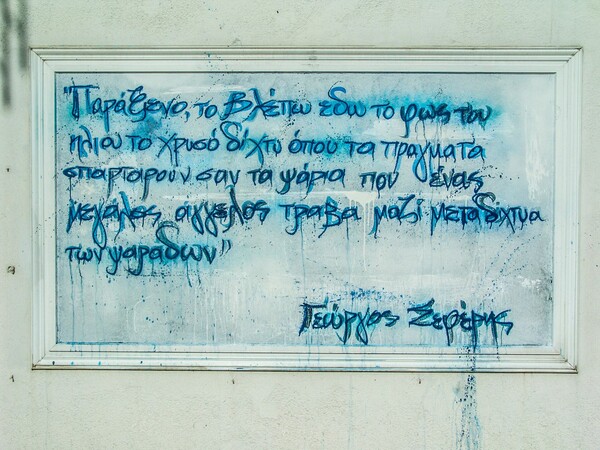 "Παράξενο, το βλέπω εδω το φως του
ηλιου το χρυσό δίχτυ όπου τα πραγματα
σπαρταρουν σαν τα ψάρια που ένας
μεγαλος αγγελος τραβα μαζί με τα διχτυα
των ψαράδων"
Γεώργος Σεφέρης